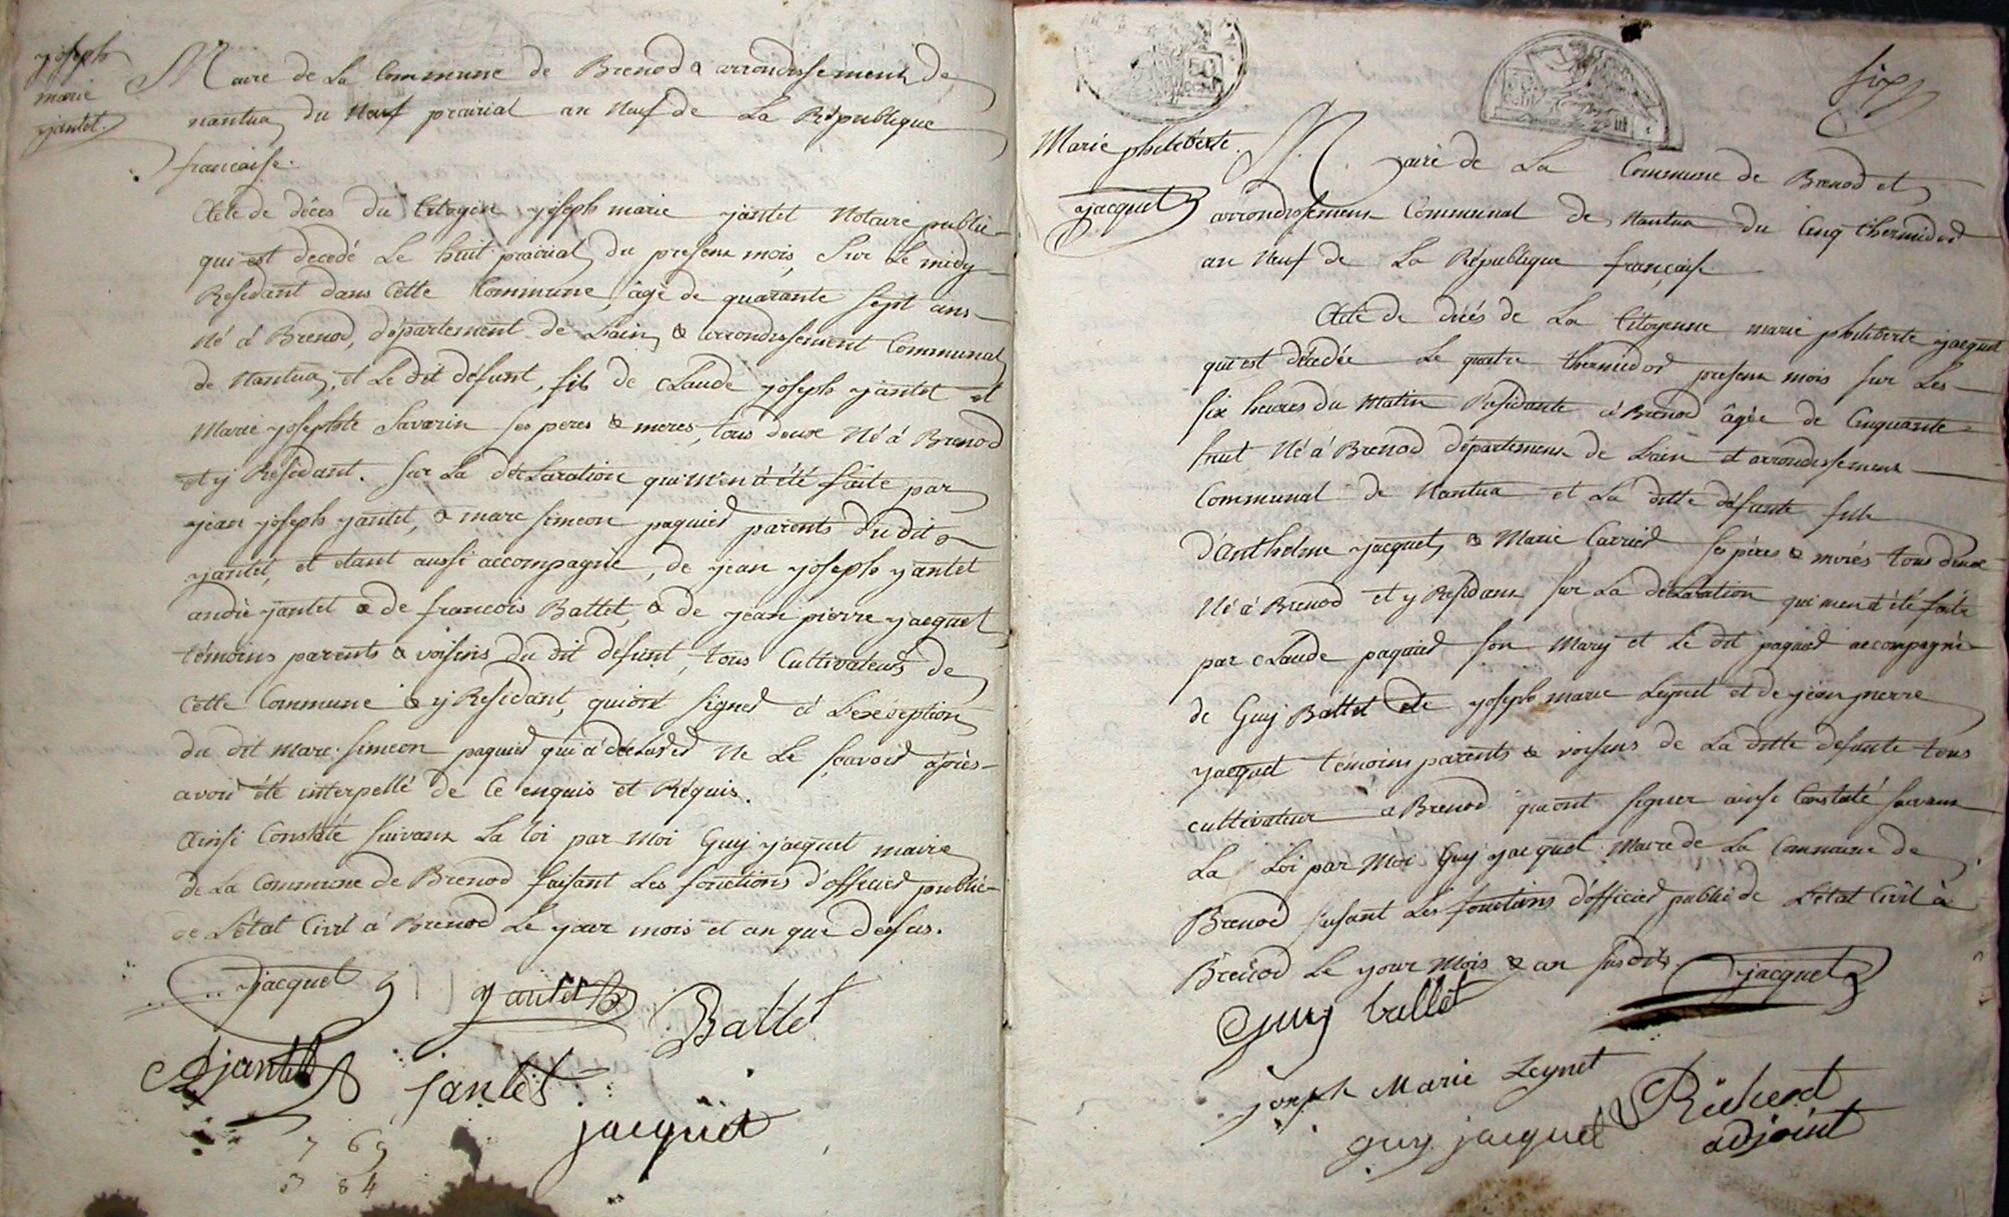 yoseph
marie
yantet.
Maire de La Commune de Brenod & arrondissement de
nantua, du Neuf prairial an Neuf de La République
francaise.
Acte de dèces du Citoyen yoseph marie yantet Notaire public
qui est decedé Le huit prairial du present mois, Sur Le midy
Residant dans Cette Commune, âgé de quarante sept ans
Né à Brenod, département de L'ain, & arrondissement Communal
de Nantua, et Le dit défunt, fils de Claude yoseph yantet et
Marie yosephte Savarin ses peres & meres, tous deux Né à Brenod
et y Residant. Sur La déclaration qui m'en à été faite par
yean yoseph yantet, & marc simeon paquier parents du dit
yantet, et etant aussi accompagné, de yean yoseph yantet
andré yantet & de francois Battet, & de yean pierre yacquet
témoins parents & voisins du dit defunt, tous Cultivateurs de
Cette Commune & y Residant, qui ont signer à L'exception
du dit marc simeon paquier qui à déclarer Ne Le scavoir après
avoir été interpellé de Ce enquis et Réquis.
Ainsi Constaté suivant La Loi par Moi Guy yacquet maire
de La Commune de Brenod faisant Les fonctions d'officier public
de L'état Civil à Brenod Le jour mois et an que dessus.
yacquet yantet Battet
yantet jantet
jacquet
7 69
84
six
Marie philiberte.
yacquet
Maire de La Commune de Brenod et
arrondissement Communal de Nantua du Cinq thermidor
an Neuf de La République française.
Acte de décés de La Citoyenne marie philiberte yacquet
qui est décedée Le quatre thermidor present mois sur Les
six heures du Matin Residante à Brenod âgée de Cinquante
huit Né à Brenod département de L'ain et arrondissement
Communal de Nantua et La ditte défunte fille
d'Anthelme yacquet, & Marie Carrier ses pères & mères tous deux
Né à Brenod et y Residant sur La déclaration qui men à été faite
par Claude paquier son Mary et Le dit paquier accompagné
de Guy Battet de yoseph marie Leynet et de yean pierre
yacquet témoins parents & voisins de La ditte defunte tous
cultivateur à Brenod qui ont signer ainsi Constaté suivant
La Loi par Moi Guy yacquet Maire de La Commune de
Brenod faisant Les fonctions d'officier public de L'état Civil à
Brenod Le your Mois & an susdits. yacquet
Guy ballet
joseph Marie Leynet
guy jacquet Richerot
adjoint